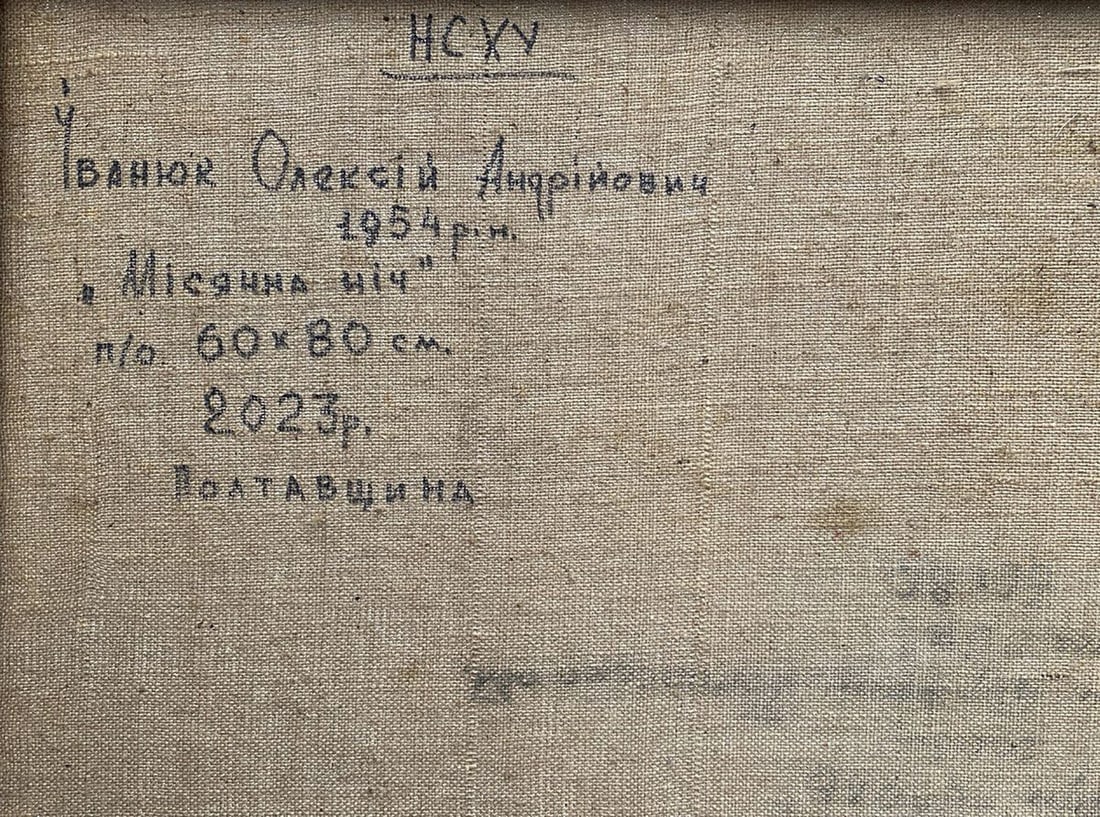 НСХУ
Іванюк Олексій Андрійович
1954 р.н.
„Місячна ніч"
п/о 60х80 см.
2023р.
Полтавщина